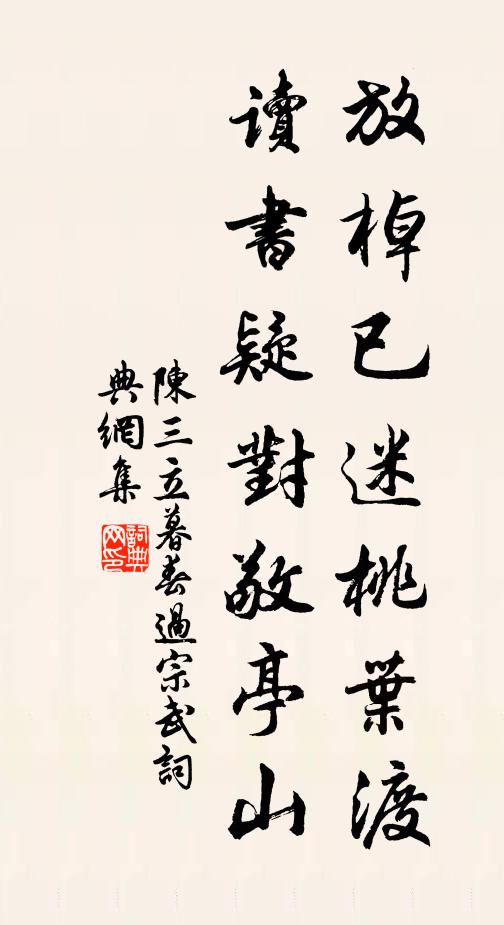 放棹已迷桃葉渡
讀書疑對敬亭山
陳三立暮春過宗武詞
典網集
詞典網印